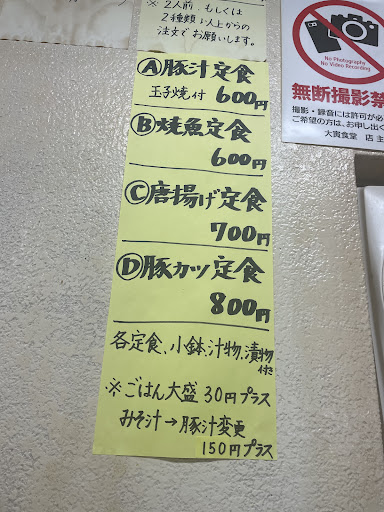 ※2人前、もしくは
2種類以上からの
注文でお願いします。
Ⓐ豚汁定食
玉子焼付 600円
Ⓑ焼魚定食
600円
Ⓒ唐揚げ定食
700円
Ⓓ豚カツ定食
800円
各定食、小鉢、汁物、漬物
付き
※ごはん大盛 30円プラス
みそ汁→豚汁変更
150円プラス
No Photography
No Video Recording
無断撮影禁
撮影・録音には許可が必
ご希望の方は、お申し出く
大寅食堂 店主